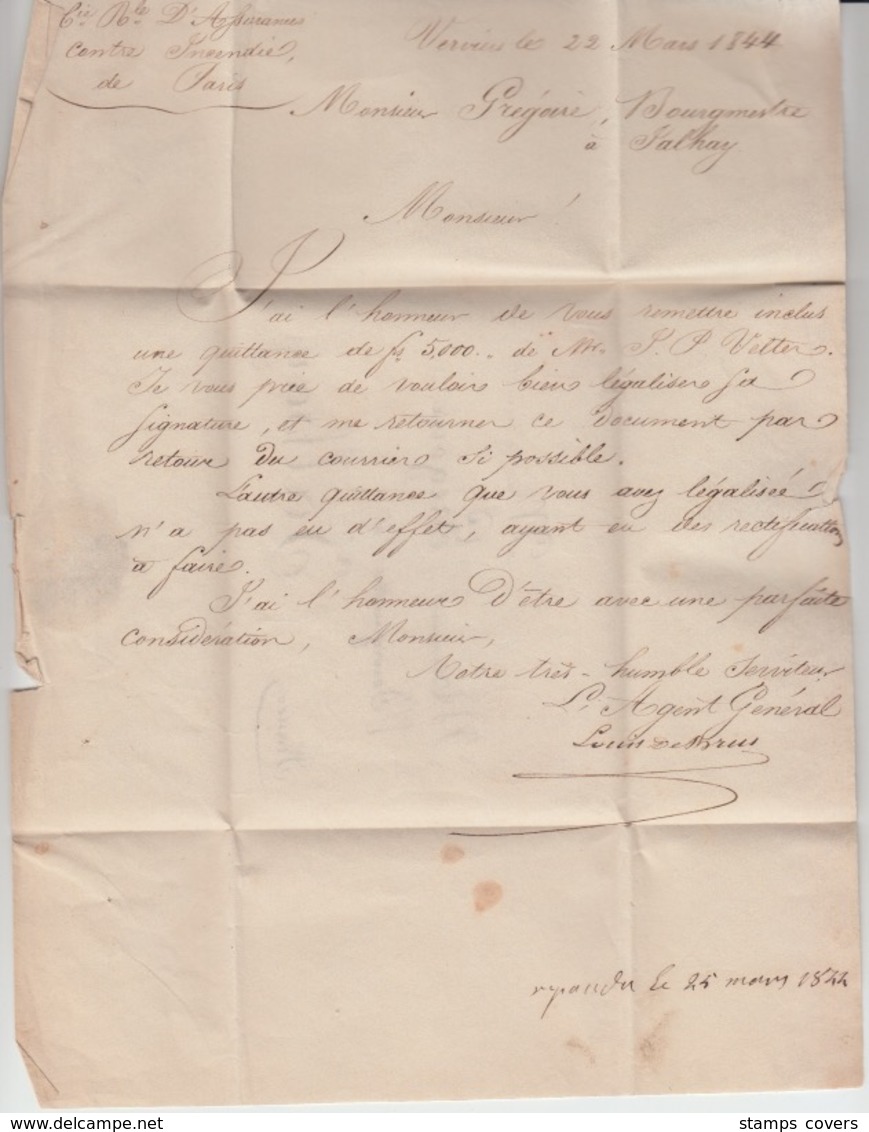 Cie Rle D'Assurances
contre Incendie,
de Paris
Verviers le 22 Mars 1844
Monsieur Grégoire, Bourgmestre
à Jalhay
Monsieur !
J'ai l'honneur de vous remettre inclus
une quittance de fs 5,000.. de Mr. J. P Vetter.
Je vous prie de vouloir bien légaliser sa
signature, et me retourner ce document par
retour du courrier si possible.
L'autre quittance que vous avez légalisée
n'a pas eu d'effet, ayant eu des rectifications
à faire.
J'ai l'honneur d'être avec une parfaite
considération, Monsieur,
Votre très-humble Serviteur
L'Agent Général
Louis
repondu le 25 mars 1844
stamps covers